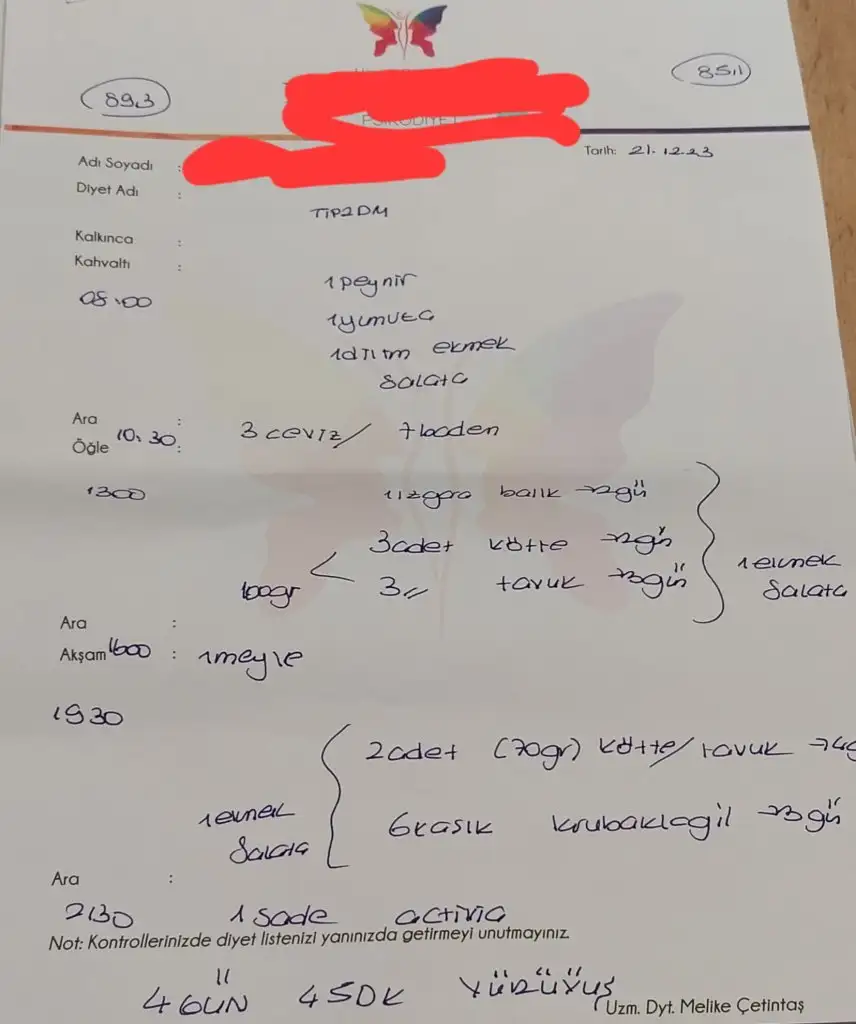 89,3
85,1
PSİKODİYET
Tarih: 21.12.23
Adı Soyadı :
Diyet Adı :
TİP2DM
Kalkınca :
Kahvaltı :
08:00
1 peynir
1 yumurta
1 dilim ekmek
Salata
Ara :
10.30 3 ceviz / 7 badem
Öğle :
1300
1 ızgara balık → 2gün
3 adet köfte → 2gün
100gr < 3 〃 tavuk → 3gün
1 ekmek
Salata
Ara :
1600 1 meyve
Akşam :
1930
2 adet (70gr) köfte/tavuk → 4g
6 kaşık kurubaklagil → 3gün
1 ekmek
Salata
Ara :
2130 1 sade activia
Not: Kontrollerinizde diyet listenizi yanınızda getirmeyi unutmayınız.
4 GÜN 45DK YÜRÜYÜŞ
Uzm. Dyt. Melike Çetintaş